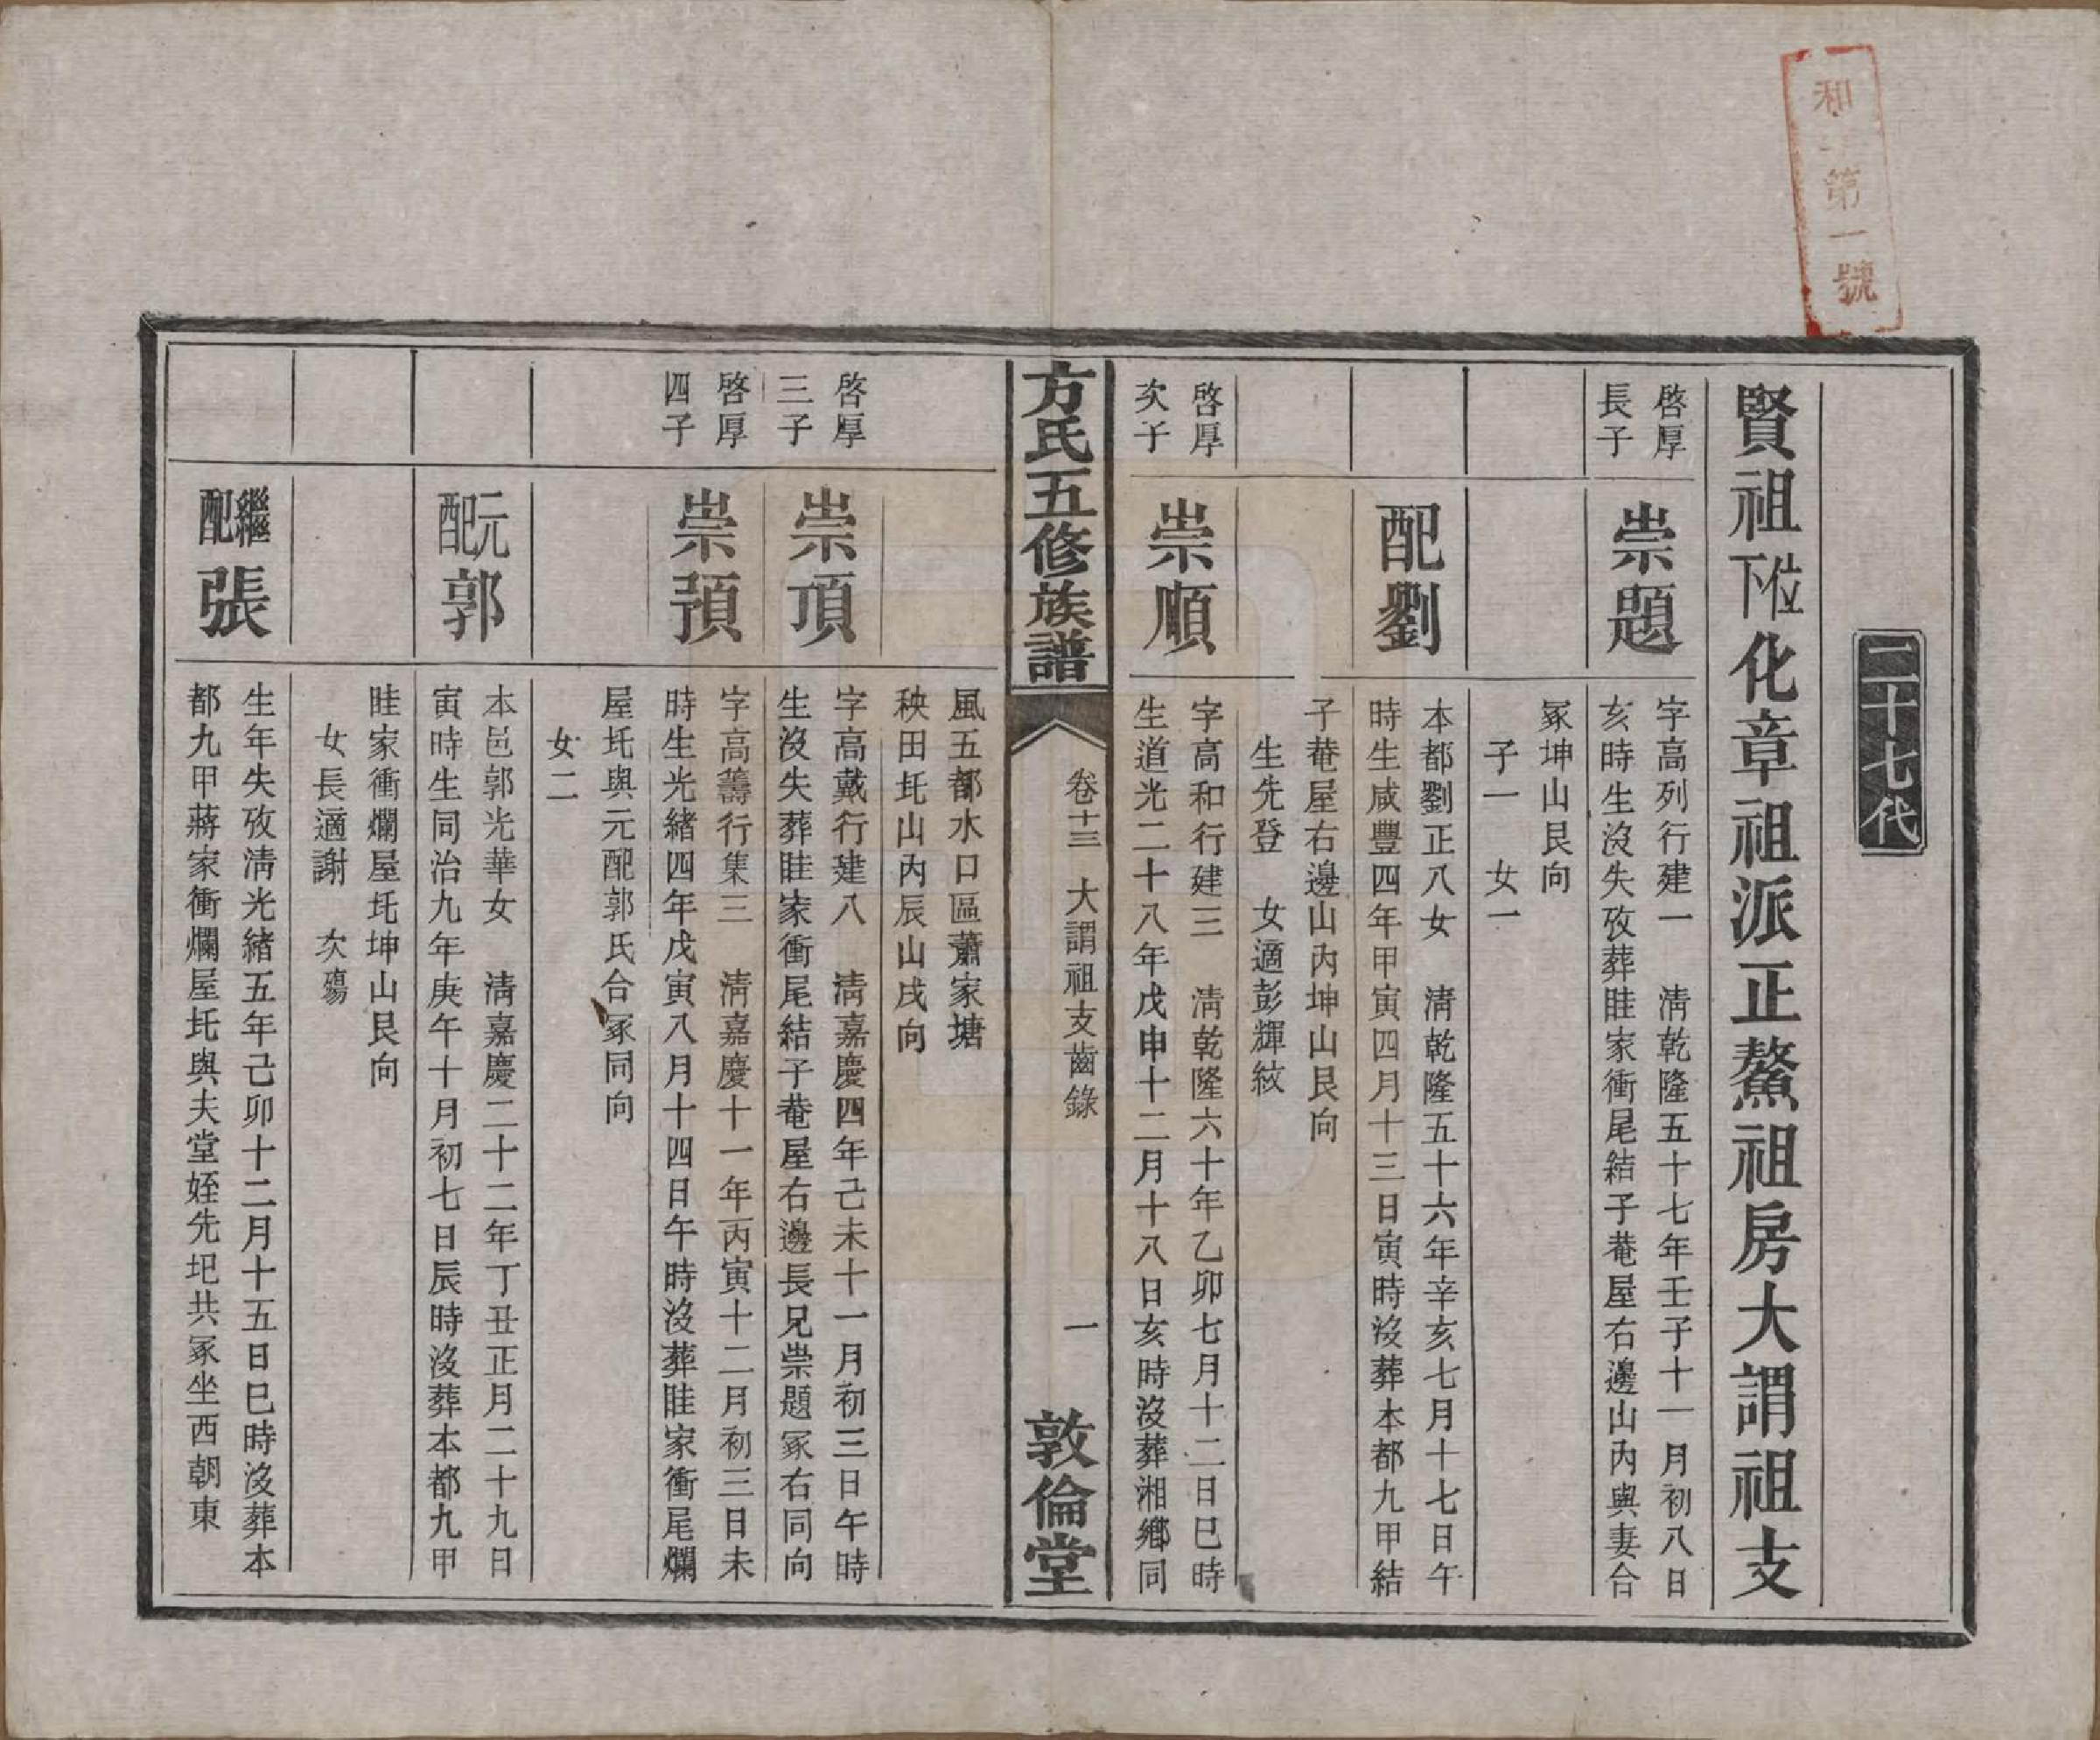 和
第一號
二十七代
賢祖位下化章祖派正鰲祖房大謂祖支
啓厚
長子
崇題
字高列行建一　清乾隆五十七年壬子十一月初八日
亥時生沒失攷葬眭家衝尾結子菴屋右邊山內與妻合
冢坤山艮向
子一　女一
配劉
本都劉正八女　清乾隆五十六年辛亥七月十七日午
時生咸豐四年甲寅四月十三日寅時沒葬本都九甲結
子菴屋右邊山內坤山艮向
生先登　女適彭輝紋
啓厚
次子
崇順
字高和行建三　清乾隆六十年乙卯七月十二日巳時
生道光二十八年戊申十二月十八日亥時沒葬湘鄉同
方氏五修族譜
卷十三　大謂祖支齒錄
一
敦倫堂
風五都水口區蕭家塘
秧田圫山內辰山戌向
啓厚
三子
崇頂
字高戴行建八　清嘉慶四年己未十一月初三日午時
生沒失葬眭家衝尾結子菴屋右邊長兄崇題冢右同向
啓厚
四子
崇預
字高籌行集三　清嘉慶十一年丙寅十二月初三日未
時生光緒四年戊寅八月十四日午時沒葬眭家衝尾爛
屋圫與元配郭氏合冢同向
女二
元配郭
本邑郭光華女　清嘉慶二十二年丁丑正月二十九日
寅時生同治九年庚午十月初七日辰時沒葬本都九甲
眭家衝爛屋圫坤山艮向
女長適謝　次殤
繼配張
生年失攷清光緒五年己卯十二月十五日巳時沒葬本
都九甲蔣家衝爛屋圫與夫堂姪先圯共冢坐西朝東